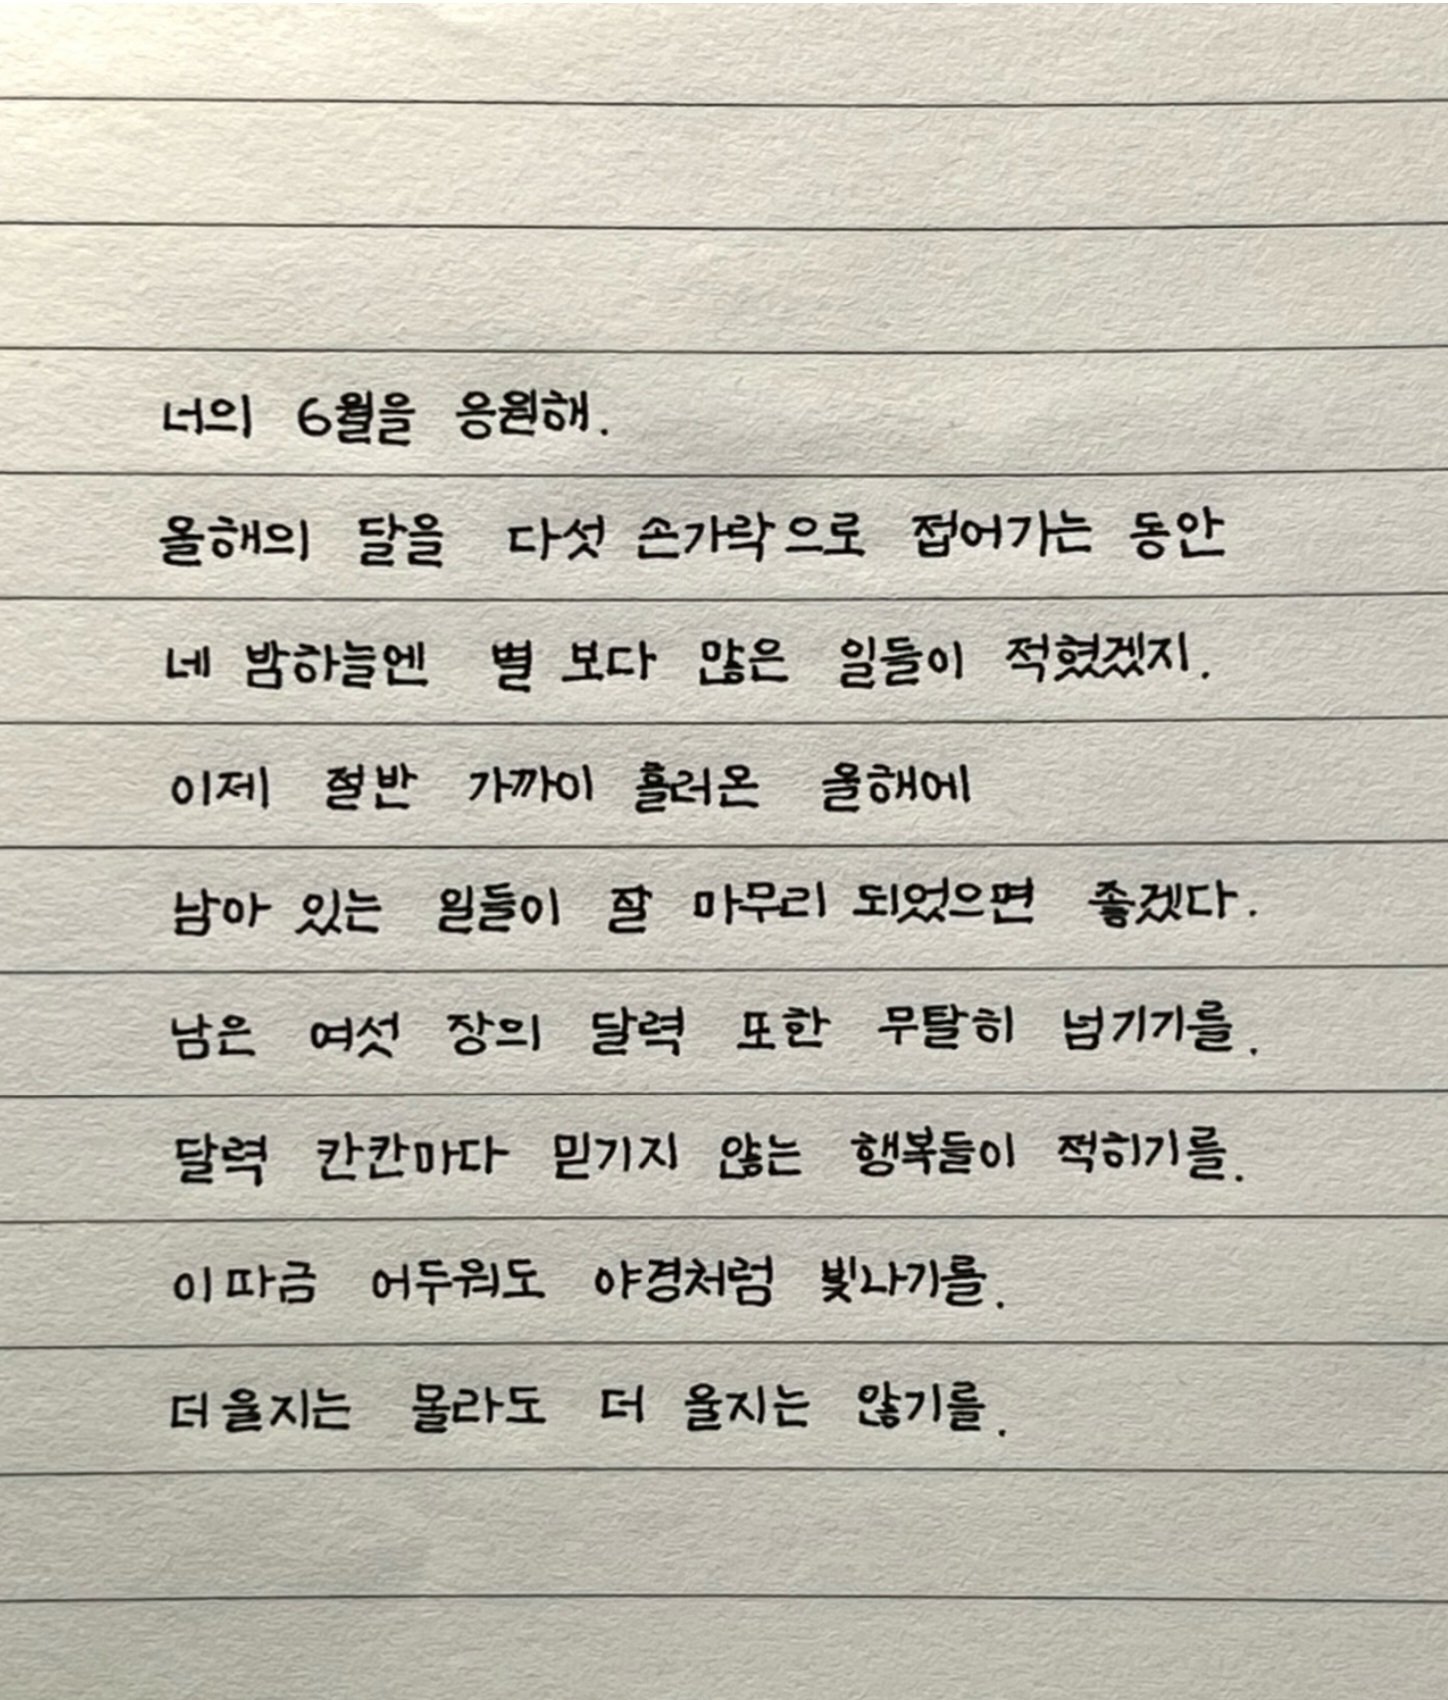 너의 6월을 응원해.
올해의 달을 다섯 손가락으로 접어가는 동안
네 밤하늘엔 별 보다 많은 일들이 적혔겠지.
이제 절반 가까이 흘러온 올해에
남아 있는 일들이 잘 마무리 되었으면 좋겠다.
남은 여섯 장의 달력 또한 무탈히 넘기기를.
달력 칸칸마다 믿기지 않는 행복들이 적히기를.
이따금 어두워도 야경처럼 빛나기를.
더 울지는 몰라도 더 울지는 않기를.